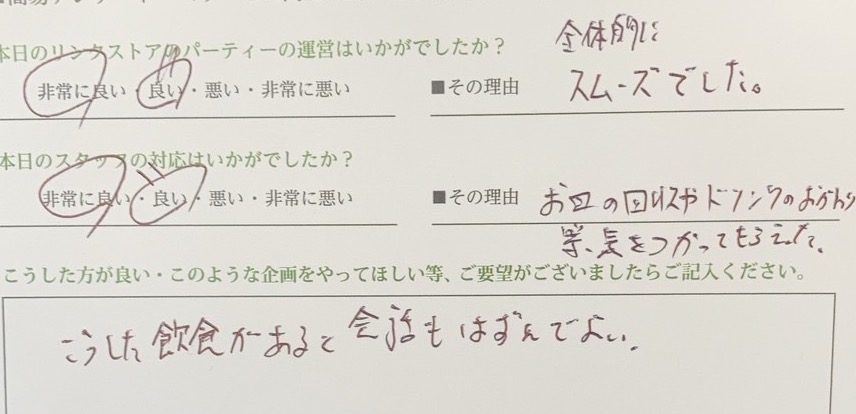 本日のリンクストアのパーティーの運営はいかがでしたか?
非常に良い・良い・悪い・非常に悪い
■その理由
全体的に
スムーズでした。
本日のスタッフの対応はいかがでしたか?
非常に良い・良い・悪い・非常に悪い
■その理由
お皿の回収やドリンクのおかわり
等、気をつかってもらえた。
こうした方が良い・このような企画をやってほしい等、ご要望がございましたらご記入ください。
こうした飲食があると会話もはずんでよい。